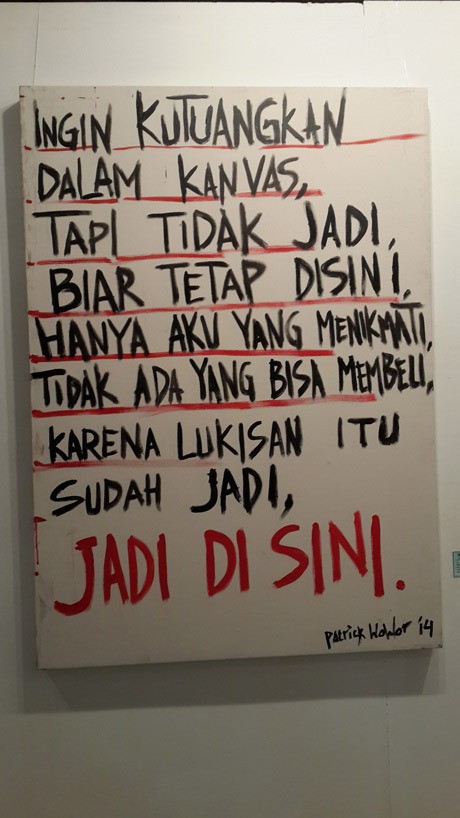 INGIN KUTUANGKAN
DALAM KANVAS,
TAPI TIDAK JADI,
BIAR TETAP DISINI,
HANYA AKU YANG MENIKMATI,
TIDAK ADA YANG BISA MEMBELI,
KARENA LUKISAN ITU
SUDAH JADI,
JADI DI SINI.
Patrick Wowor '14